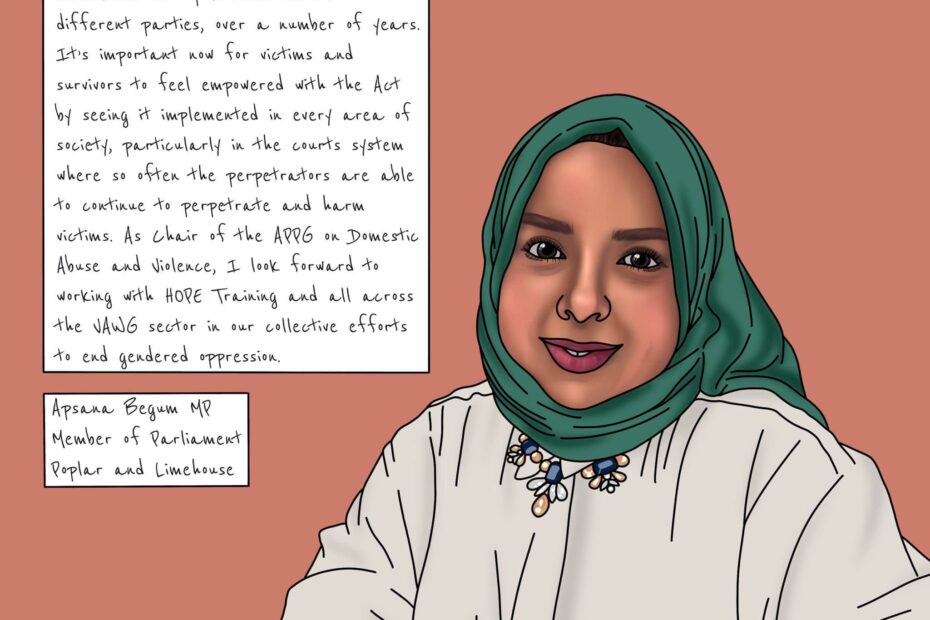 different parties, over a number of years.
It's important now for victims and
survivors to feel empowered with the Act
by seeing it implemented in every area of
society, particularly in the courts system
where so often the perpetrators are able
to continue to perpetrate and harm
victims. As Chair of the APPG on Domestic
Abuse and Violence, I look forward to
working with HOPE Training and all across
the VAWG sector in our collective efforts
to end gendered oppression.
Apsana Begum MP
Member of Parliament
Poplar and Limehouse